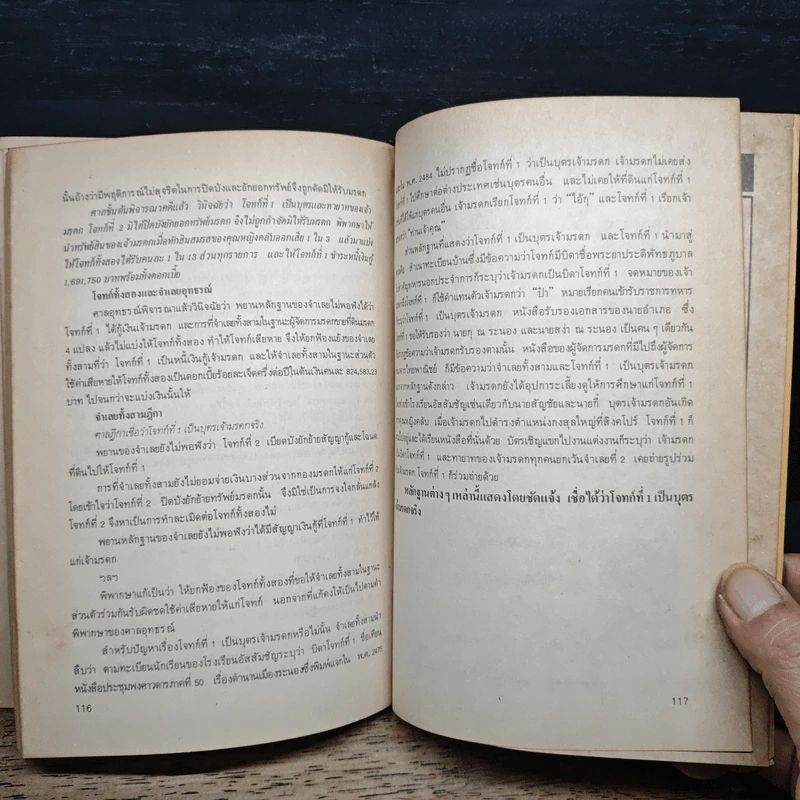 นั้นอ้างว่ามีพฤติการณ์ไม่สุจริตในการปิดบังและยักยอกทรัพย์จึงถูกตัดมิให้รับมรดก
ศาลชั้นต้นพิจารณาคดีแล้ว วินิจฉัยว่า โจทก์ที่ 1 เป็นบุตรและทายาทของเจ้า
มรดก โจทก์ที่ 2 มิได้ปิดบังยักยอกทรัพย์มรดก จึงไม่ถูกกำจัดมิให้รับมรดก พิพากษาให้
นำทรัพย์สินของเจ้ามรดกเมื่อหักสินสมรสของคุณหญิงคลับออกเสีย 1 ใน 3 แล้วมาแบ่ง
ให้โจทก์ทั้งสองได้รับคนละ 1 ใน 13 ส่วนทุกรายการ และให้โจทก์ที่ 1 ชำระหนี้เงินกู้
1,691,750 บาทพร้อมทั้งดอกเบี้ย
โจทก์ทั้งสองและจำเลยอุทธรณ์
ศาลอุทธรณ์พิจารณาแล้ววินิจฉัยว่า พยานหลักฐานของจำเลยไม่พอฟังได้ว่า
โจทก์ที่ 1 ได้กู้เงินเจ้ามรดก และการที่จำเลยทั้งสามในฐานะผู้จัดการมรดกขายที่ดินมรดก
4 แปลง แล้วไม่แบ่งให้โจทก์ทั้งสอง ทำให้โจทก์เสียหาย จึงให้ยกฟ้องแย้งของจำเลย
ทั้งสามที่ว่า โจทก์ที่ 1 เป็นหนี้เงินกู้เจ้ามรดก และให้จำเลยทั้งสามในฐานะส่วนตัว
ใช้ค่าเสียหายให้โจทก์ทั้งสองเป็นดอกเบี้ยร้อยละเจ็ดครึ่งต่อปีในต้นเงินคนละ 824,583.23
บาท ไปจนกว่าจะแบ่งเงินนั้นให้
จำเลยทั้งสามฎีกา
ศาลฎีกาเชื่อว่าโจทก์ที่ 1 เป็นบุตรเจ้ามรดกจริง
พยานของจำเลยยังไม่พอฟังว่า โจทก์ที่ 2 เบียดบังยักย้ายสัญญากู้และโฉนด
ที่ดินไปให้โจทก์ที่ 1
การที่จำเลยทั้งสามยังไม่ยอมจ่ายเงินบางส่วนจากกองมรดกให้แก่โจทก์ที่ 2
โดยเข้าใจว่าโจทก์ที่ 2 ปิดบังยักย้ายทรัพย์มรดกนั้น จึงมิใช่เป็นการจงใจกลั่นแกล้ง
โจทก์ที่ 2 จึงหาเป็นการทำละเมิดต่อโจทก์ทั้งสองไม่
พยานหลักฐานของจำเลยยังไม่พอฟังว่าได้มีสัญญาเงินกู้ที่โจทก์ที่ 1 ทำไว้ให้
แก่เจ้ามรดก
ฯลฯ
พิพากษาแก้เป็นว่า ให้ยกฟ้องของโจทก์ทั้งสองที่ขอให้จำเลยทั้งสามในฐานะ
ส่วนตัวร่วมกันรับผิดชดใช้ค่าเสียหายให้แก่โจทก์ นอกจากที่แก้คงให้เป็นไปตามคำ
พิพากษาของศาลอุทธรณ์
สำหรับปัญหาเรื่องโจทก์ที่ 1 เป็นบุตรเจ้ามรดกหรือไม่นั้น จำเลยทั้งสามนำ
สืบว่า ตามทะเบียนนักเรียนของโรงเรียนอัสสัมชัญระบุว่า บิดาโจทก์ที่ 1 ชื่อเทียน
หนังสือประชุมพงศาวดารภาคที่ 50 เรื่องตำนานเมืองระนองซึ่งพิมพ์แจกใน พ.ศ. 2475
116
ใน พ.ศ. 2484 ไม่ปรากฏชื่อโจทก์ที่ 1 ว่าเป็นบุตรเจ้ามรดก เจ้ามรดกไม่เคยส่ง
ที่ 1 ไปศึกษาต่อต่างประเทศเช่นบุตรคนอื่น และไม่เคยให้ที่ดินแก่โจทก์ที่ 1
ให้แก่บุตรคนอื่น เจ้ามรดกเรียกโจทก์ที่ 1 ว่า "ไอ้กุ่" และโจทก์ที่ 1 เรียกเจ้า
"ท่านเจ้าคุณ"
ส่วนหลักฐานที่แสดงว่าโจทก์ที่ 1 เป็นบุตรเจ้ามรดก และโจทก์ที่ 1 นำมาสู่
สำเนาทะเบียนบ้านซึ่งมีข้อความว่าโจทก์มีบิดาชื่อพระยาประดิพัทธภูบาล
ทหารนอกประจำการก็ระบุว่าเจ้ามรดกเป็นบิดาโจทก์ที่ 1 จดหมายของเจ้า
โจทก์ที่ 1 ก็ใช้คำแทนตัวเจ้ามรดกว่า "ป๋า" หมายเรียกคนเข้ารับราชการทหาร
โจทก์ที่ 1 เป็นบุตรเจ้ามรดก หนังสือรับรองเอกสารของนายอำเภอ ซึ่ง
ที่ 1 ขอให้รับรองว่า นายกุ่ ณ ระนอง และนายสง่า ณ ระนอง เป็นคน ๆ เดียวกัน
ข้อความว่าเจ้ามรดกรับรองตามนั้น หนังสือของผู้จัดการมรดกที่มีไปถึงผู้จัดการ
ไทยพาณิชย์ ก็มีข้อความว่าจำเลยทั้งสามและโจทก์ที่ 1 เป็นบุตรเจ้ามรดก
หลักฐานดังกล่าว เจ้ามรดกยังได้อุปการะเลี้ยงดูให้การศึกษาแก่โจทก์ที่ 1
เข้าโรงเรียนอัสสัมชัญเช่นเดียวกับนายสัญชัยและนายกี่ บุตรเจ้ามรดกอันเกิด
คลับ เมื่อเจ้ามรดกไปดำรงตำแหน่งกงสุลใหญ่ที่สิงคโปร์ โจทก์ที่ 1 ก็
และได้เรียนหนังสือที่นั่นด้วย บัตรเชิญแขกไปงานแต่งงานก็ระบุว่า เจ้ามรดก
โจทก์ที่ 1 และทายาทของเจ้ามรดกทุกคนยกเว้นจำเลยที่ 2 เคยถ่ายรูปร่วม
เจ้ามรดก โจทก์ที่ 1 ก็ร่วมถ่ายด้วย
หลักฐานต่าง ๆ เหล่านี้แสดงโดยชัดแจ้ง เชื่อได้ว่าโจทก์ที่ 1 เป็นบุตร
เจ้ามรดกจริง
117